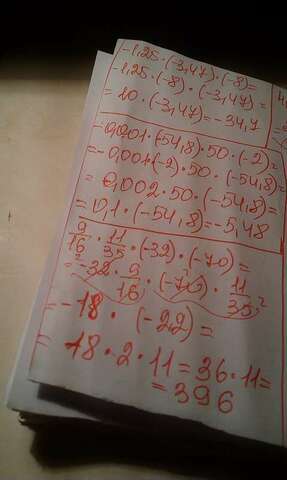 -1,25 · (-3,47) · (-8) =
-1,25 · (-8) · (-3,47) =
= 10 · (-3,47) = -34,7
-0,001 · (-54,8) · 50 · (-2) =
= -0,001 · (-2) · 50 · (-54,8) =
= 0,002 · 50 · (-54,8) =
= 0,1 · (-54,8) = -5,48
9/16 · 11/35 · (-32) · (-70) =
= -32 · 9/16 · (-70) · 11/35
-18 · (-22) =
= 18 · 2 · 11 = 36 · 11 =
= 396